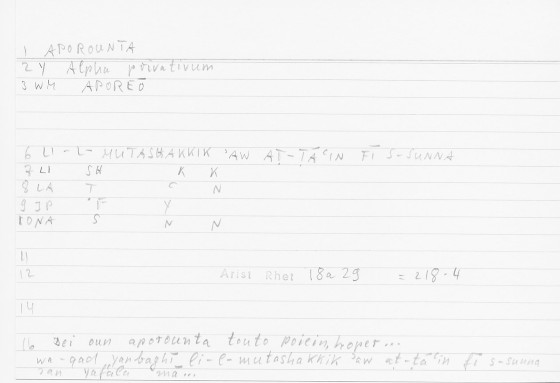 1 APOROUNTA
2 Y Alpha privativum
3 WM APOREŌ
6 LI-L-MUTASHAKKIK ʾAW AṬ-ṬĀʿIN FĪ S-SUNNA
7 LI SH K K
8 LA Ṭ ʿ N
9 JP F Y
10NA S N N
11
12 Arist Rhet 18a29 = 218.4
14
16 Dei oun aporounta touto poiein, hoper...
wa-qad yanbaghī li-l-mutashakkik ʾaw aṭ-ṭāʿin fī s-sunna
ʾan yafʿala mā...